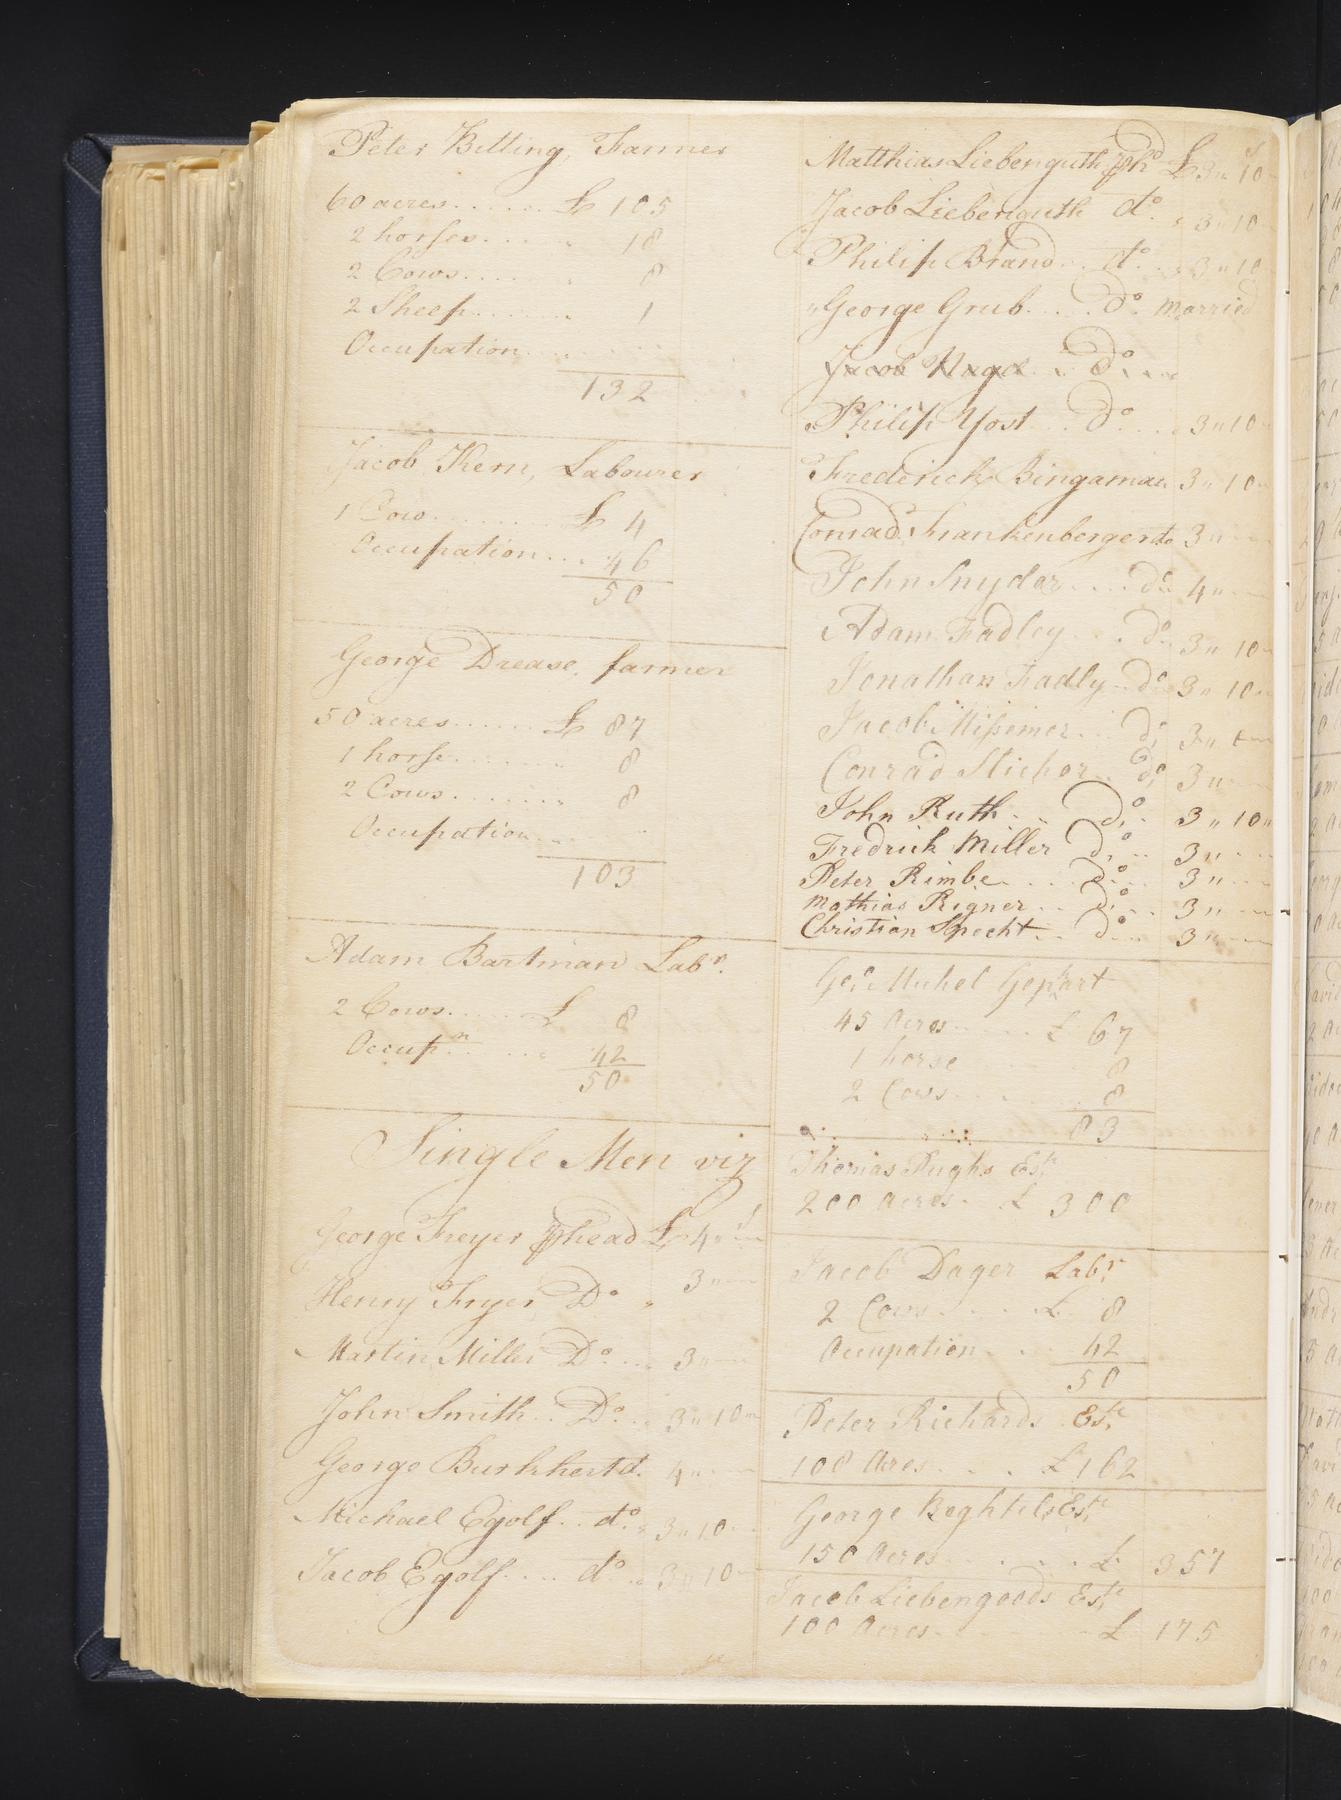 Peter Bitting, Farmer
60 acres...... £ 105
2 horses..... 18
2 Cows.... 8
2 Sheep....... 1
Occupation.......
132
Jacob Kern, Labourer
1 Cow......... £ 4
Occupation.... 46
50
George Drease. farmer
50 acres...... £ 87
1 horse....... 8
2 Cows....... 8
Occupation.....
103
Adam Bartman Labr.
2 Cows...... £ 8
Occupn..... 42
50
Single Men viz
George Freyer phead £ 4 "
Henry Fryer Do " 3 "
Martin Miller Do.... 3 "
John Smith.. Do... 3 " 10
George Burkhert d. 4 "
Michael Egolf.. do. 3 " 10
Jacob Egolf.... do.. 3 " 10
Matthias Liebenguth phd £ 3 " 10
Jacob Liebenguth do. 3 " 10
Philip Brand.. do.. 3 " 10
" George Grub.... Do. Married
Jacob Nagel.. Do...
Philip Yost... Do.... 3 " 10
Frederick Bingaman 3 " 10
Conrad Frankenberger do 3 "
John Snyder.... do 4 "
Adam Fadley... do 3 " 10
Jonathan Fadly.. do 3 " 10
Jacob Missimer... do 3 "
Conrad Sticher.. do 3 "
John Ruth... Do.. 3 " 10 "
Fredrick Miller Do... 3 "
Peter Rimbe.... Do... 3 "
Mathias Rigner.. Do... 3 "
Christian Specht.. Do... 3 "
Geo. Michel Gephart
45 Acres...... £ 67
1 horse 8
2 Cows...... 8
83
Thomas Pughs Este
200 Acres.. £ 300
Jacob Dager Labr.
2 Cows.... £ 8
Occupation... 42
50
Peter Richards Este
108 Acres.... £ 162
George Beghtils Este
150 Acres...... £ 357
Jacob Liebengoods Este
100 Acres....... £ 175